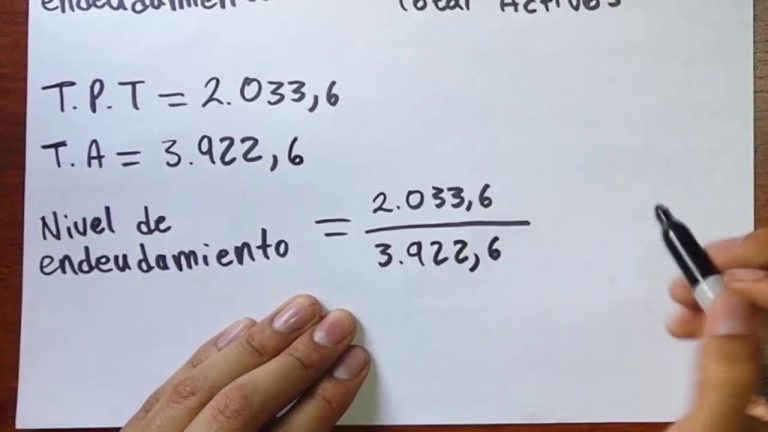 endeudamiento Total Activos
T.P.T = 2.033,6
T.A = 3.922,6
Nivel de endeudamiento = 2.033,6
3.922,6